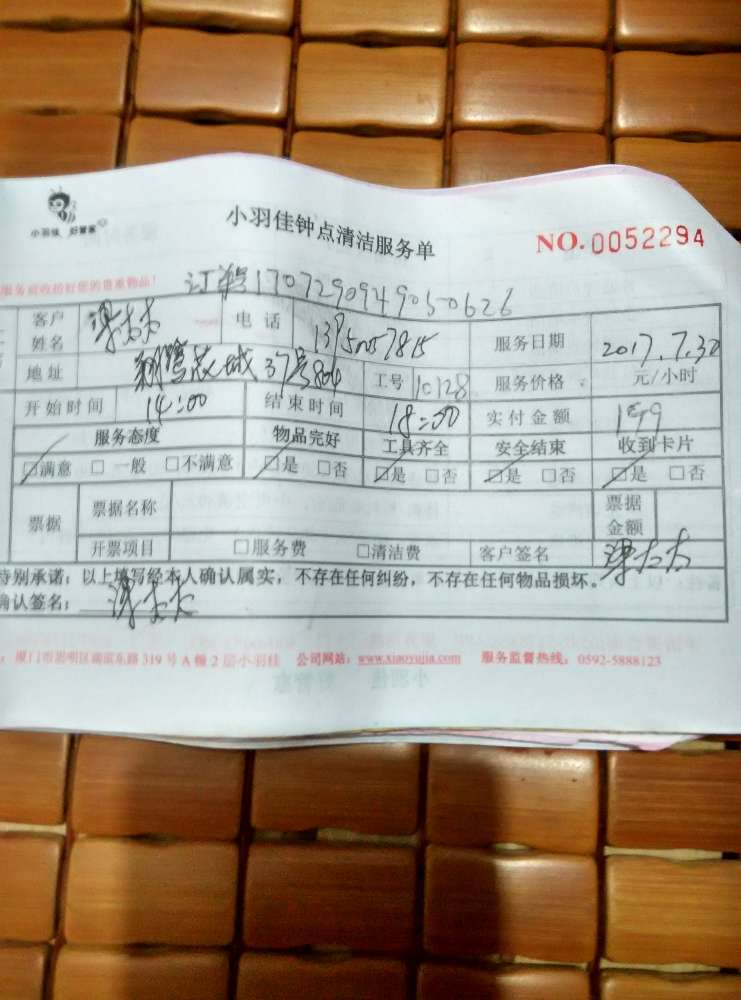 小羽佳 好管家
小羽佳钟点清洁服务单
NO.0052294
服务前收拾好您的贵重物品!
订单1707290949050626
客户姓名 电话 服务日期 2017.7.30
地址 翔鹭花城37号804 工号 10128 服务价格: 元/小时
开始时间 14:00 结束时间 18:00 实付金额 199
服务态度 物品完好 工具齐全 安全结束 收到卡片
☑满意 □一般 □不满意 ☑是 □否 ☑是 □否 ☑是 □否 ☑是 □否
票据 票据名称 票据金额
开票项目 □服务费 □清洁费 客户签名 谭太太
特别承诺:以上填写经本人确认属实,不存在任何纠纷,不存在任何物品损坏。
确认签名: 谭太太
厦门市思明区湖滨东路319号A幢2层小羽佳 公司网站:www.xiaoyujia.com 服务监督热线:0592-5888123